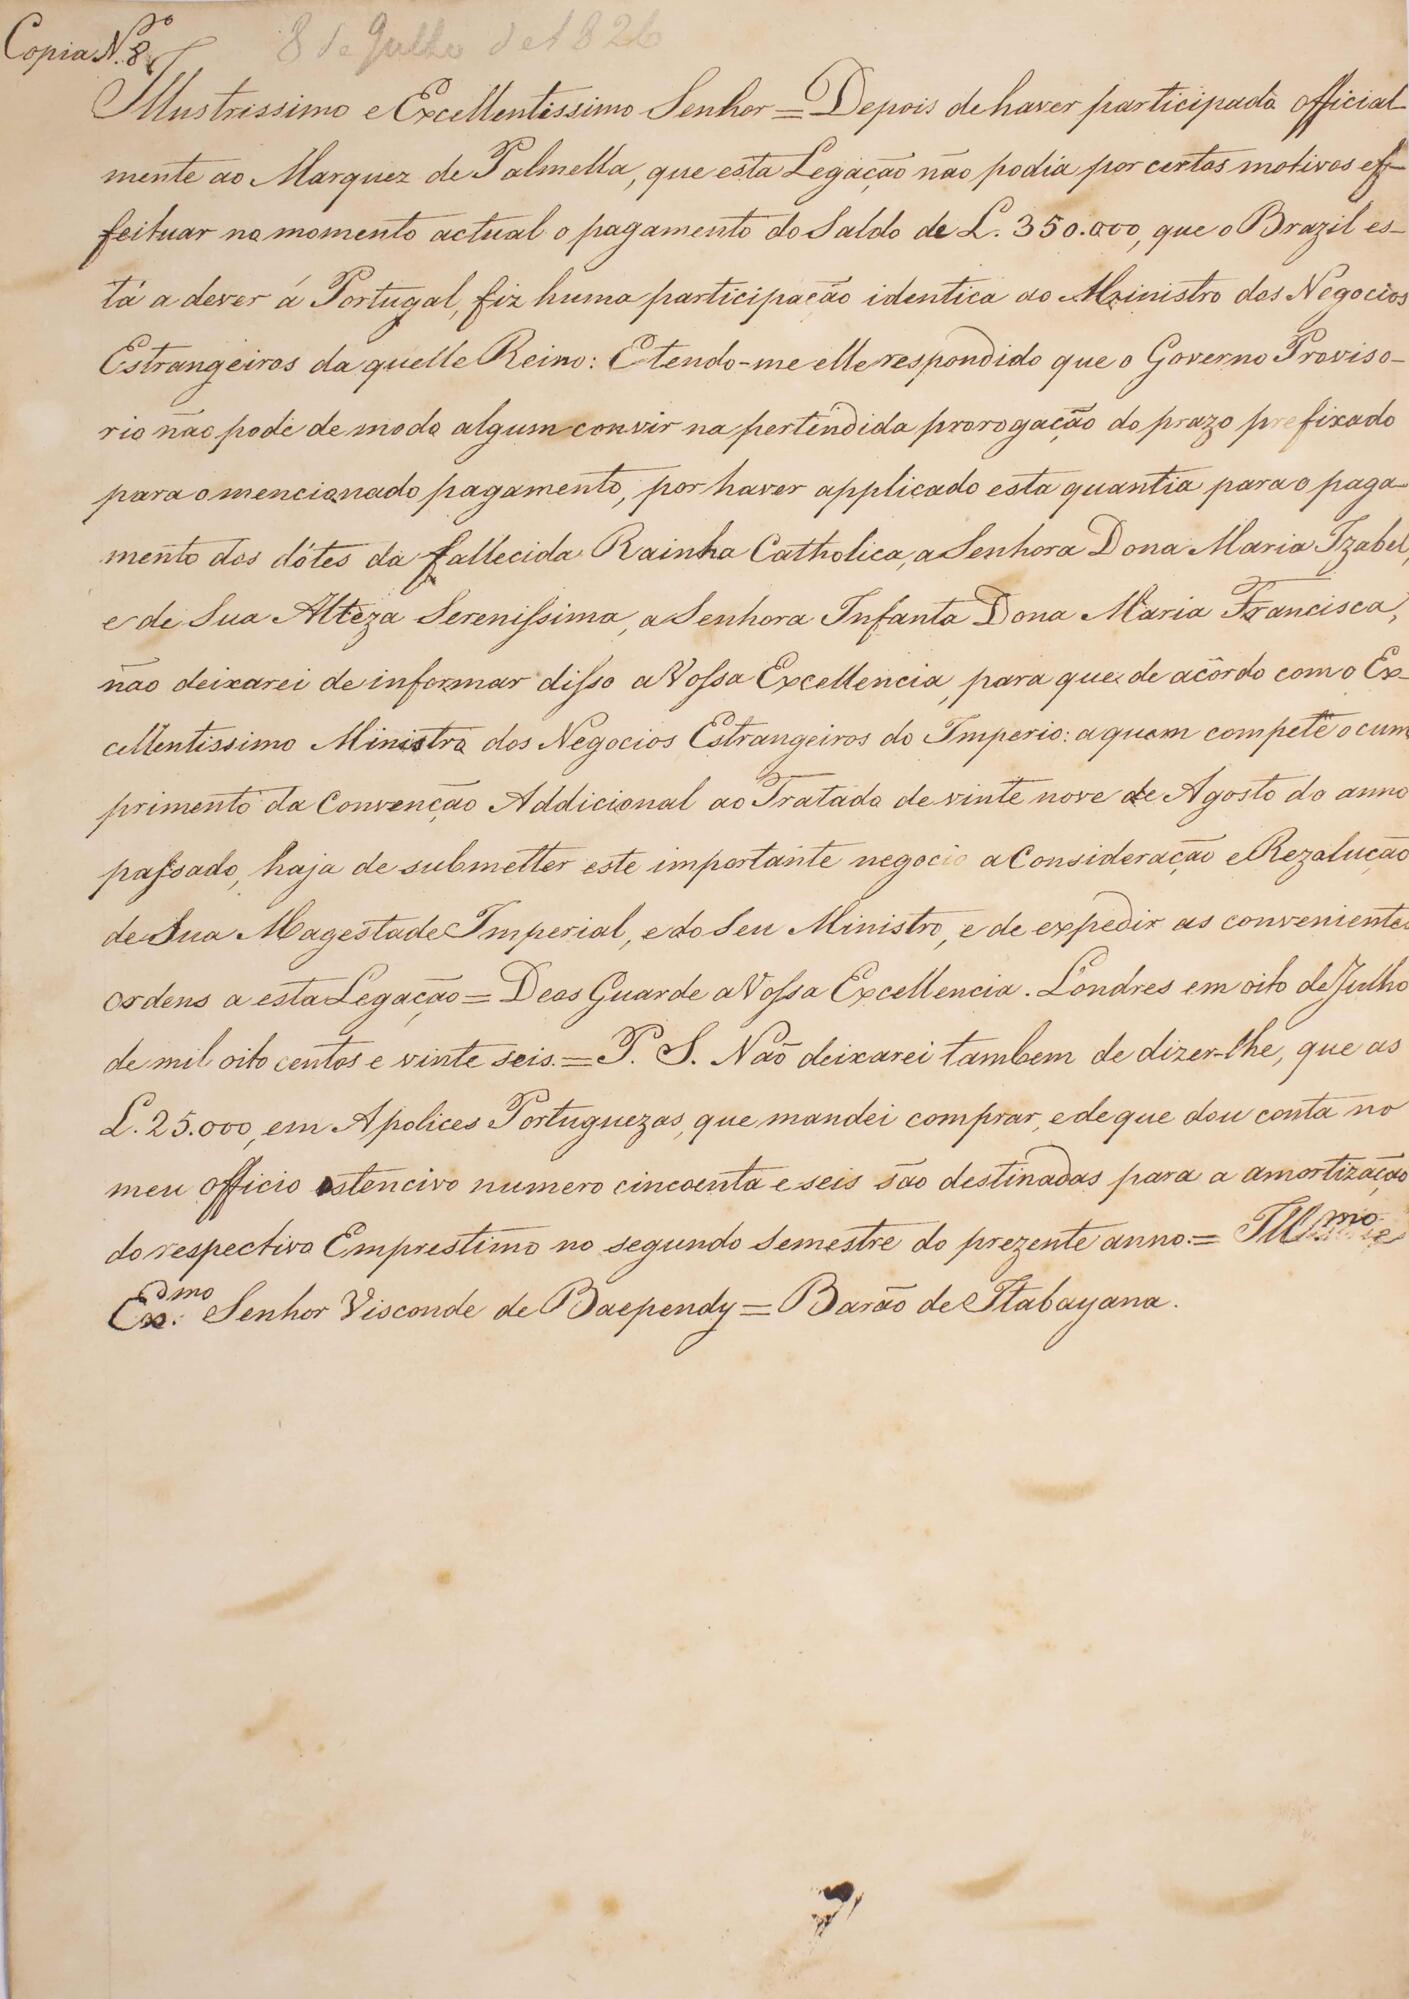 Copia N.º 8.
8 de Julho de 1826
Illustrissimo e Excellentissimo Senhor = Depois de haver participado official
mente ao Marquez de Palmella, que esta Legação não podia por certos motivos ef-
feituar no momento actual o pagamento do Saldo de L. 350.000, que o Brazil es-
tá a dever á Portugal, fiz huma participação identica ao Ministro dos Negocios
Estrangeiros da quelle Reino: E tendo-me elle respondido que o Governo Proviso-
rio não pode de modo algum convir na pertendida prorogação do prazo prefixado
para o mencionado pagamento, por haver applicado esta quantia para o paga-
mento dos dótes da fallecida Rainha Catholica, a Senhora Dona Maria Izabel,
e de Sua Alteza Serenissima, a Senhora Infanta Dona Maria Francisca,
não deixarei de informar disso a Vossa Excellencia, para que de acôrdo com o Ex-
cellentissimo Ministro dos Negocios Estrangeiros do Imperio: a quem compete o cum
primento da Convenção Addicional ao Tratado de vinte nove de Agosto do anno
passado, haja de submetter este importante negocio a Consideração e Rezolução
de Sua Magestade Imperial, e do Seu Ministro, e de expedir as convenientes
ordens a esta Legação = Deos Guarde a Vossa Excellencia. Londres em oito de Julho
de mil oito centos e vinte seis. = P. S. Não deixarei tambem de dizer-lhe, que as
L. 25.000, em Apolices Portuguezas, que mandei comprar, e de que dou conta no
meu officio ostencivo numero cincoenta e seis são destinadas para a amortização
do respectivo Emprestimo no segundo semestre do prezente anno. = Ill.mo e
Ex.mo Senhor Visconde de Baependy = Barão de Itabayana.